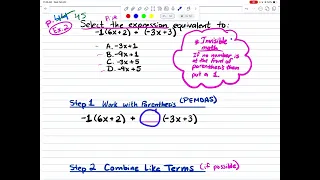 Ex.2
Select the expression equivalent to:
-1(6x+2) + (-3x+3)
A. -3x+1
B. -9x+1
C. -3x+5
D. -9x+5
* Invisible
math
if no number is
at the front of
parenthesis then
put a 1.
Step 1 Work with Parenthesis (PEMDAS)
-1(6x+2) + (-3x+3)
Step 2 Combine Like Terms (if possible)